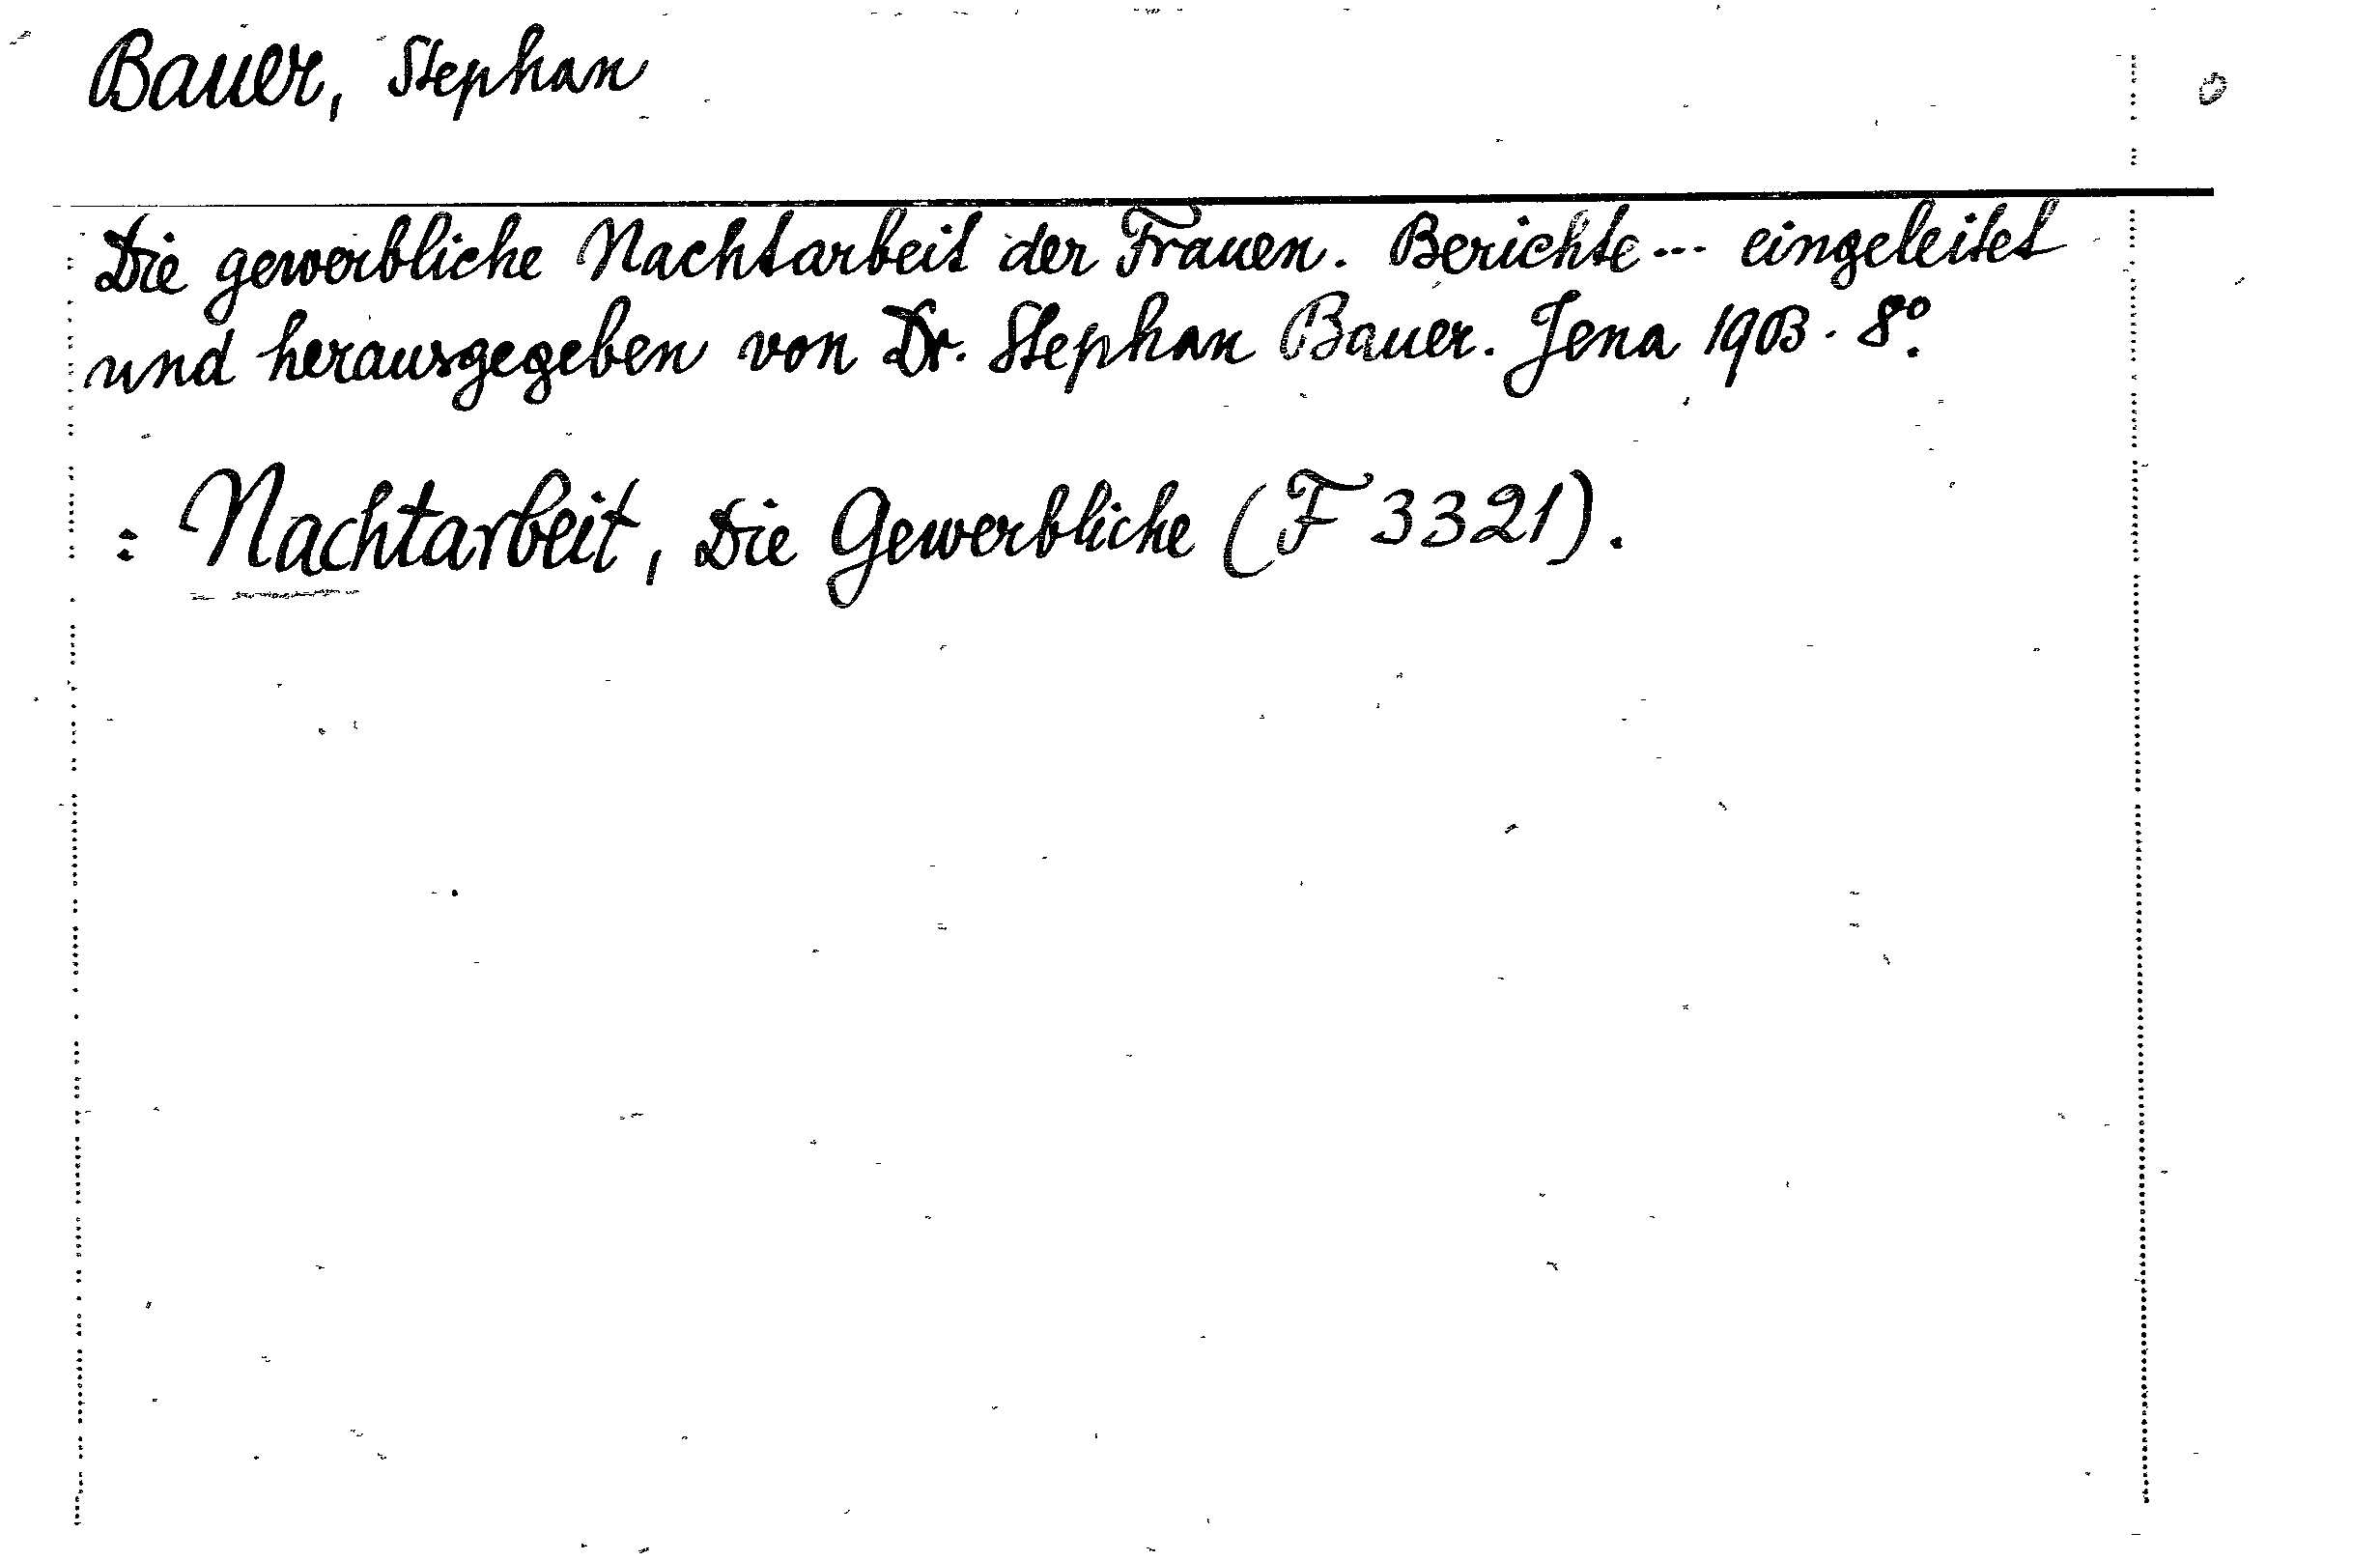 Bauer, Stephan
Die gewerbliche Nachtarbeit der Frauen. Berichte --- eingeleitet
und herausgegeben von Dr. Stephan Bauer. Jena 1903. 8°.
: Nachtarbeit, Die Gewerbliche (F 3321).